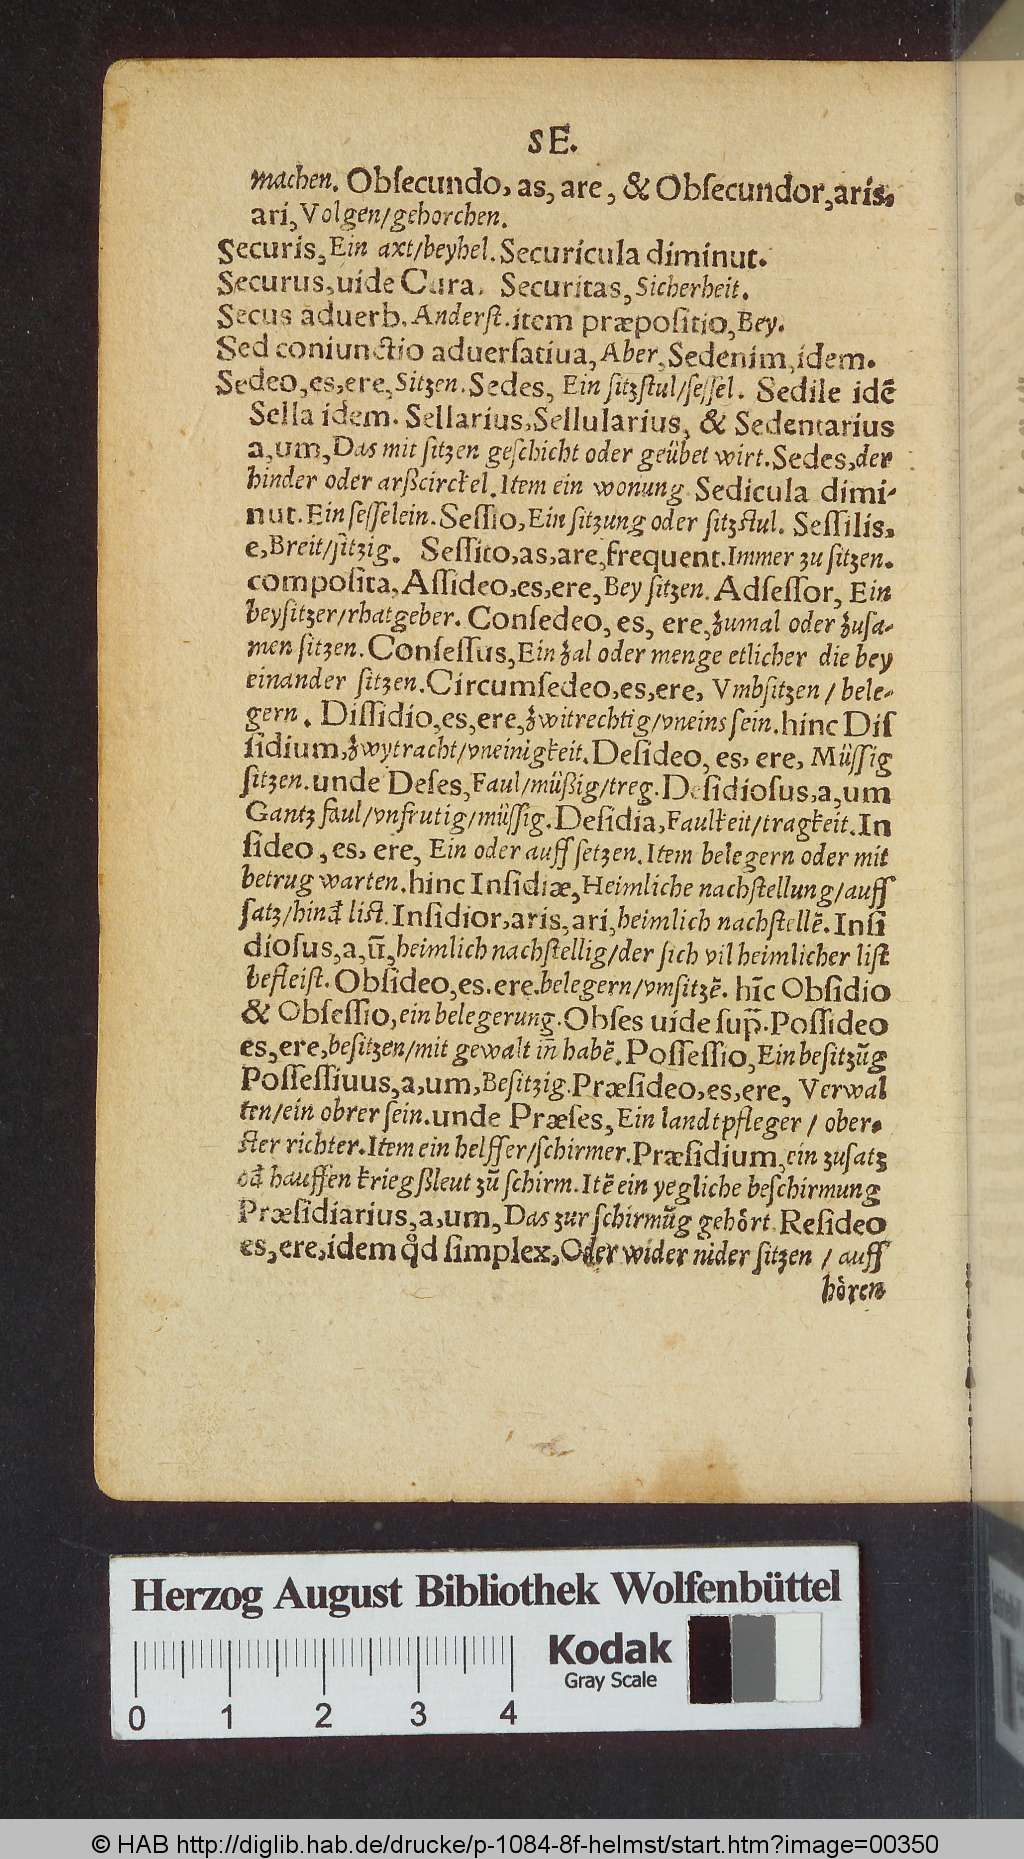 SE.
machen. Obſecundo, as, are, & Obſecundor, aris,
ari, Volgen/gehorchen.
Securis, Ein axt/beyhel. Securicula diminut.
Securus, uide Cura. Securitas, Sicherheit.
Secus aduerb. Anderſt. item præpoſitio, Bey.
Sed coniunctio aduerſatiua, Aber, Sedenim, idem.
Sedeo, es, ere, Sitzen. Sedes, Ein ſitzſtul/ſeſſel. Sedile idē
Sella idem. Sellarius, Sellularius, & Sedentarius
a, um, Das mit ſitzen geſchicht oder geübet wirt. Sedes, der
hinder oder arßcirckel. Item ein wonung Sedicula dimi-
nut. Ein ſeſſelein. Seſſio, Ein ſitzung oder ſitzſtul. Seſſilis,
e, Breit/ſitzig. Seſſito, as, are, frequent. Immer zu ſitzen.
compoſita, Aſſideo, es, ere, Bey ſitzen. Adſeſſor, Ein
beyſitzer/rhatgeber. Conſedeo, es, ere, zumal oder zuſa-
men ſitzen. Conſeſſus, Ein zal oder menge etlicher die bey
einander ſitzen. Circumſedeo, es, ere, Vmbſitzen / bele-
gern. Diſſidio, es, ere, zwitrechtig/vneins ſein. hinc Diſ
ſidium, zwytracht/vneinigkeit. Deſideo, es, ere, Müſſig
ſitzen. unde Deſes, Faul/müßig/treg. Deſidioſus, a, um
Gantz faul/vnfrutig/müſſig. Deſidia, Faulkeit/tragkeit. In
ſideo, es, ere, Ein oder auff ſetzen. Item belegern oder mit
betrug warten. hinc Inſidiæ, Heimliche nachſtellung/auff
ſatz/hind̃ liſt. Inſidior, aris, ari, heimlich nachſtellē. Inſi
dioſus, a, ū, heimlich nachſtellig/der ſich vil heimlicher liſt
befleiſt. Obſideo, es. ere. belegern/vmſitzē. hīc Obſidio
& Obſeſſio, ein belegerung. Obſes uide ſup̄. Poſſideo
es, ere, beſitzen/mit gewalt in̄ habē. Poſſeſſio, Ein beſitzūg
Poſſeſſiuus, a, um, Beſitzig. Præſideo, es, ere, Verwal
ten/ein obrer ſein. unde Præſes, Ein landtpfleger / ober-
ſter richter. Item ein helffer/ſchirmer. Præſidium, ein zuſatz
od̃ hauffen kriegßleut zū ſchirm. Itē ein yegliche beſchirmung
Præſidiarius, a, um, Das zur ſchirmūg gehört. Reſideo
es, ere, idem qd̃ ſimplex, Oder wider nider ſitzen / auff
hören
Herzog August Bibliothek Wolfenbüttel
Kodak
Gray Scale
0 1 2 3 4
© HAB http://diglib.hab.de/drucke/p-1084-8f-helmst/start.htm?image=00350